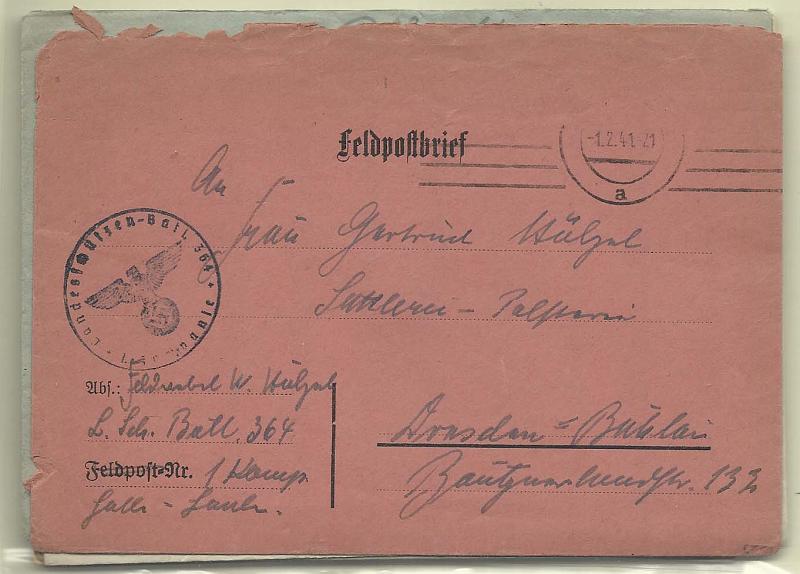 Feldpostbrief
-1.2.41-21
a
An
Frau Gertrud Hülzel
Sattlerei - Polsterei
Landesschützen-Batl. 364
Abs.: Feldwebel W. Hülzel
L. Sch. Batl. 364
Feldpost-Nr. 1 Komp.
Halle - Saale.
Dresden = Bühlau
Bautznerlandstr. 132